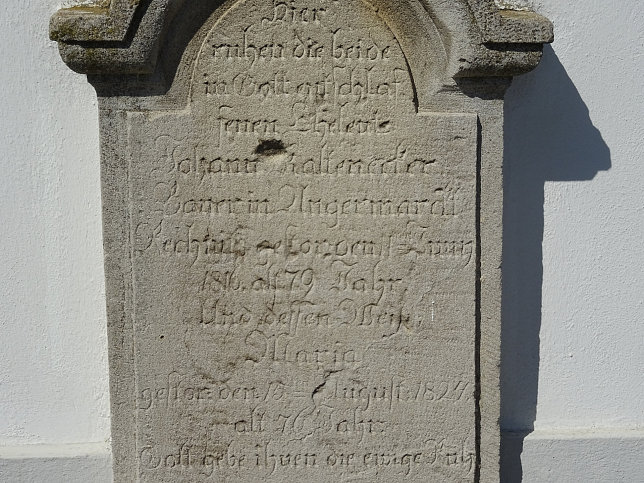 Hier
ruhen die beide
in Gott entschlaf
fenen Eheleute
Johann Kaltenecker
Bauer in Ungermarckt
gestorben Juny
1810. alt 79 Jahr
Und dessen Weib
Maria
gestorben 15ten August 1827.
alt 76 Jahr
Gott gebe ihnen die ewige Ruh